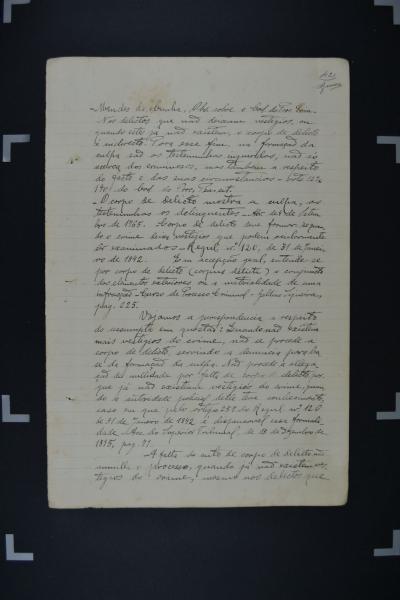 42
-Mendes da Cunha, Obs. sobre o Cod. do Proc. Crim.
Nos delictos que não deixam vestigios, ou
quando estes já não existem, o corpo de delicto
é indirecto. Para esse fim, na formação da
culpa são as testemunhas inqueridas, não só
ácerca dos criminosos, mas tambem a respeito
do facto e das suas circumstancias - 
do Cod. do Proc.
-O corpo de delicto mostra a culpa, as
testemunhas os delinquentes - de
de 1865. Corpo de delicto
o crime deixa vestigios que podem ser
examinados - Regul. nº 120, de 31 de Janei-
ro de 1842. Em accepção geral, entende-se
por corpo de delicto (corpus delicti) o conjuncto
dos elementos exteriores ou a materialidade de uma
infracção - Curso de Processo Criminal - Galdino Siqueira,
pag. 225.
Vejamos a jurisprudencia a respeito
do assumpto em questão: Quando não existem
mais vestigios do crime, não se procede a
corpo de delicto, servindo a denuncia para ba-
se da formação da culpa. Não procede a allega-
ção de nullidade por falta de corpo de delicto, por-
que já não existiam vestigios do crime, quan-
do a autoridade policial delle teve conhecimento,
caso em que pelo artigo 259 do Regul. nº 120
de 31 de Janeiro de 1842 é dispensavel essa formali-
dade - Acc. do Superior Tribunal, de 18 de Dezembro de
1895, pag. 91.
-A falta do auto de corpo de delicto não
nulla o processo, quando já não existem ves-
tigios do crime, mesmo nos delictos que